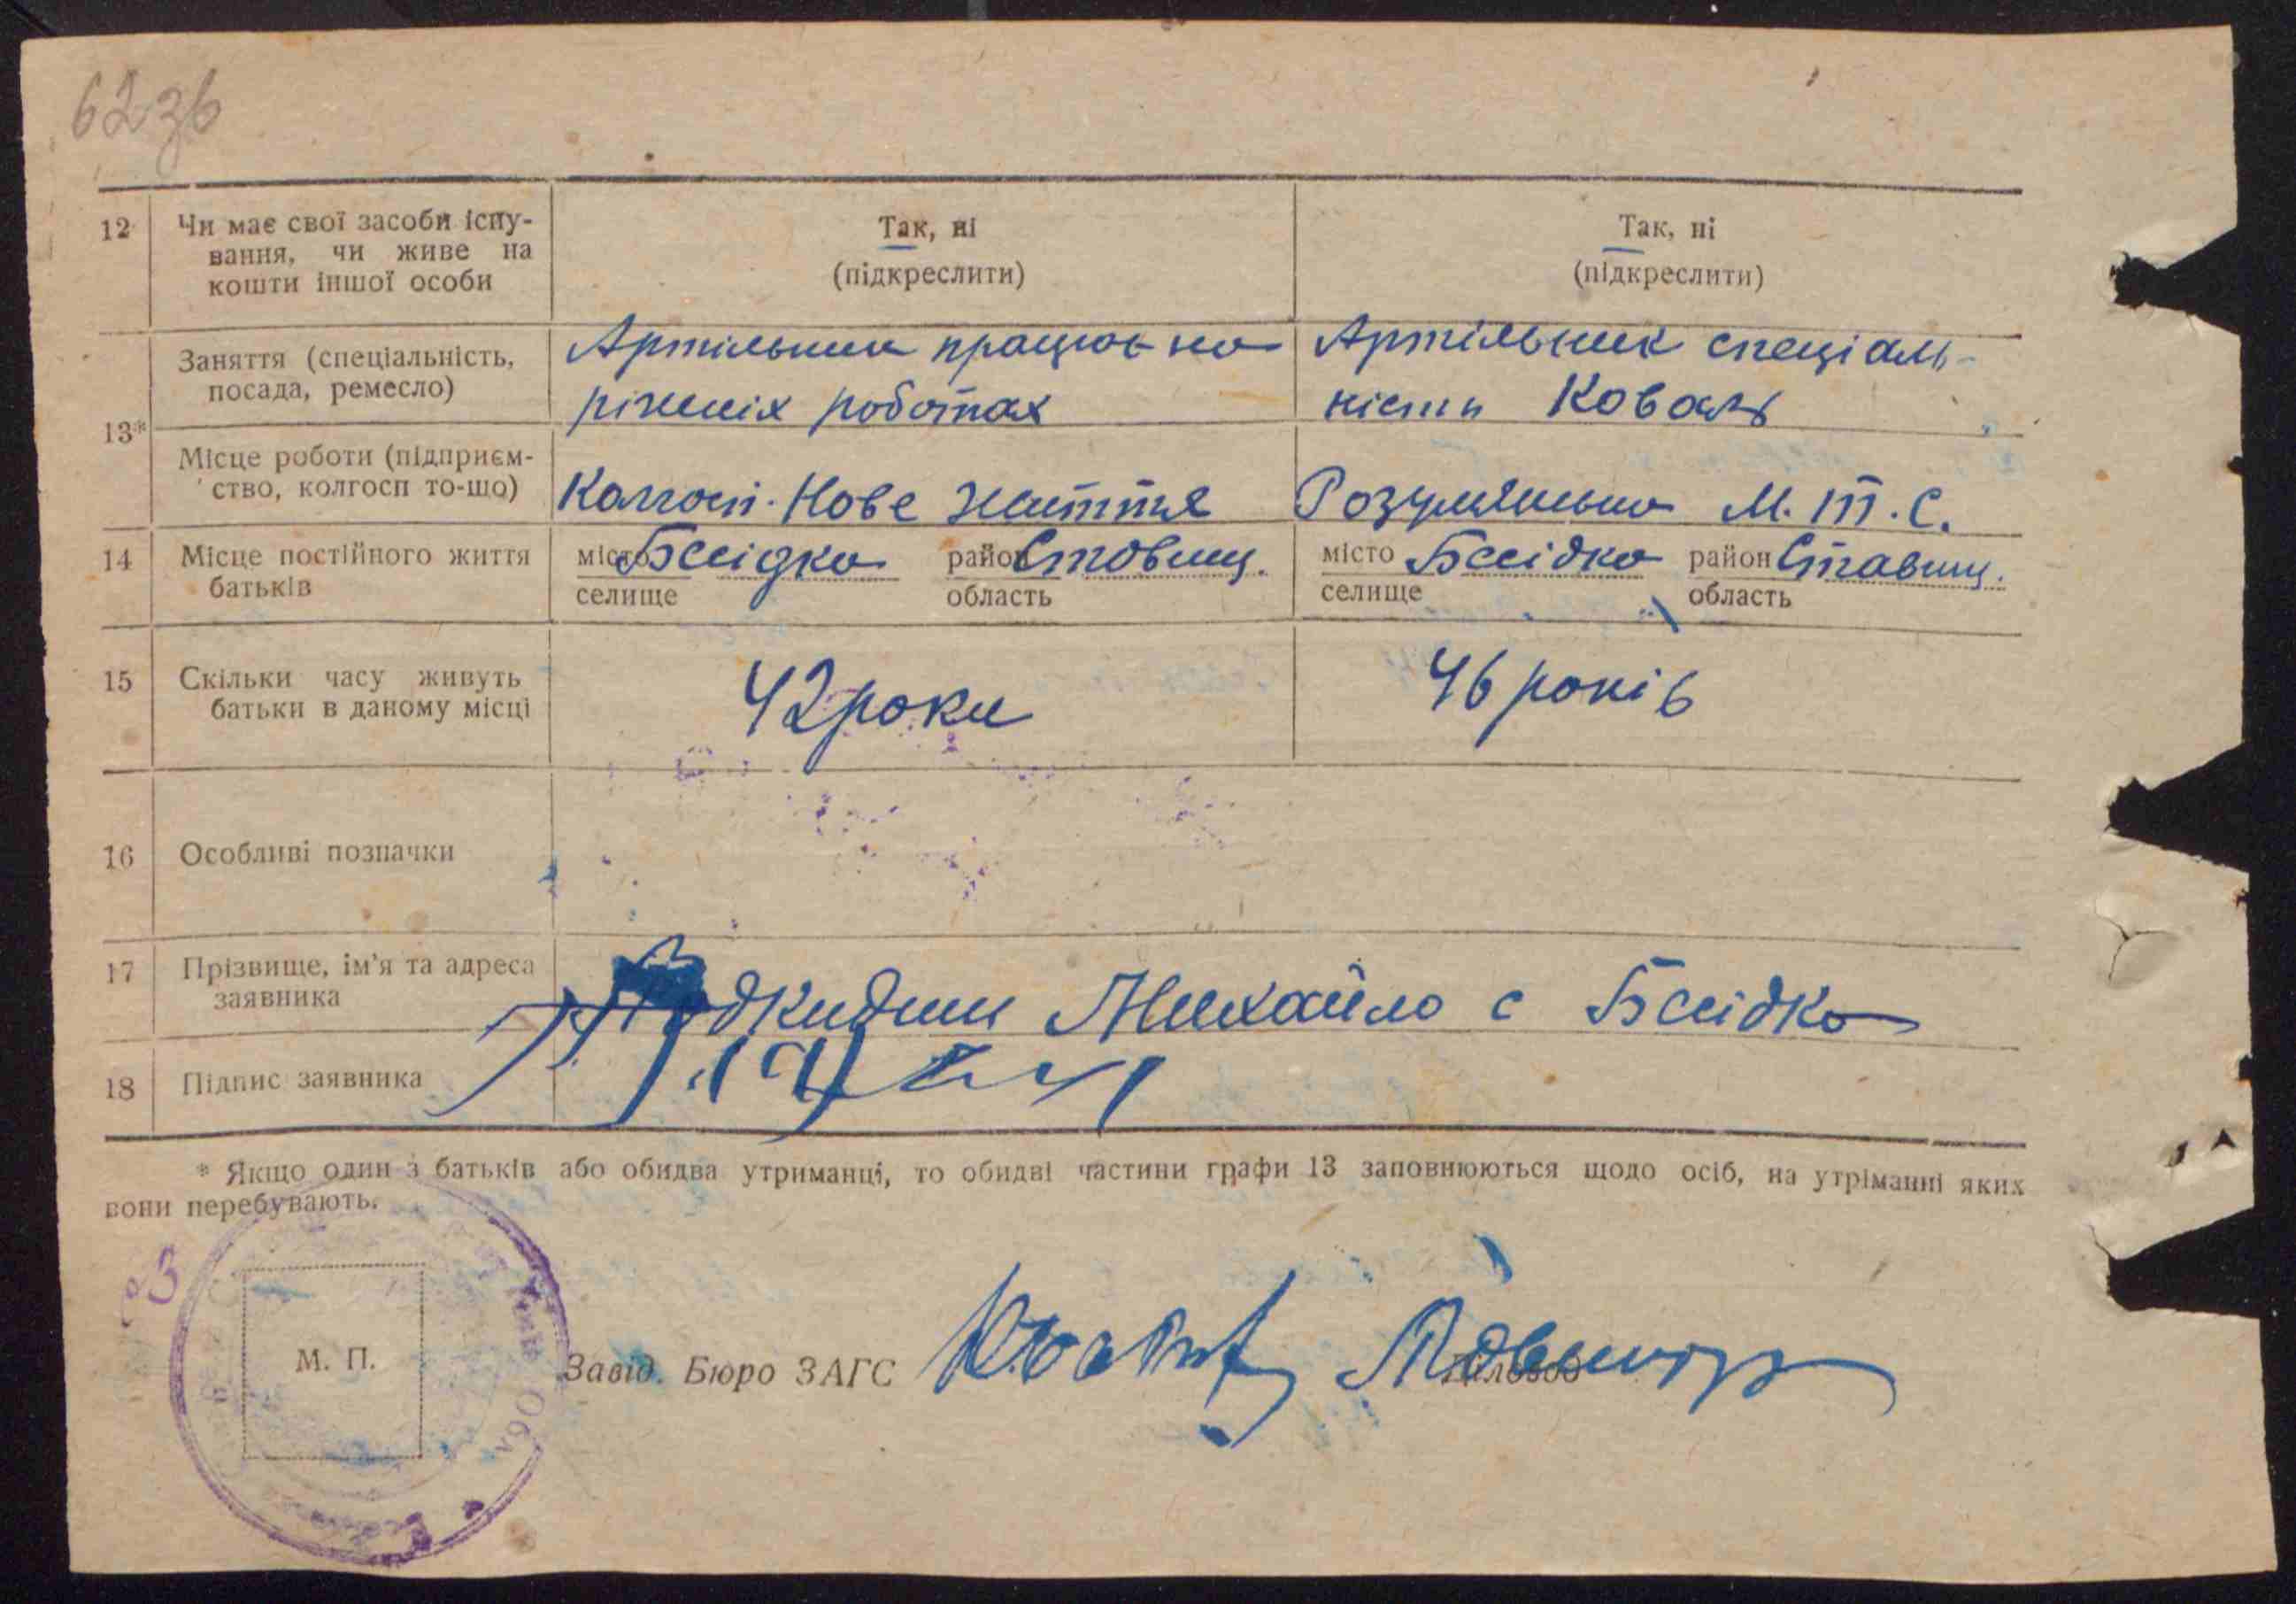 62зв
12 Чи має свої засоби існу- Так, ні Так, ні
вання, чи живе на (підкреслити) (підкреслити)
кошти іншої особи
13* Заняття (спеціальність, Артільник працює на Артільник спеціаль-
посада, ремесло) ріжніх роботах ність Коваль
Місце роботи (підприєм-
ство, колгосп то-що) Колгосп Нове життя М.Т.С.
14 Місце постійного життя місто Бесідка район Ставищ. місто Бесідка район Ставищ.
батьків селище область селище область
15 Скільки часу живуть 42 роки 46 років
батьки в даному місці
16 Особливі позначки
17 Прізвище, ім'я та адреса Михайло с Бесідка
заявника
18 Підпис заявника
* Якщо один з батьків або обидва утриманці, то обидві частини графи 13 заповнюються щодо осіб, на утріманні яких
вони перебувають.
М. П.
Завід. Бюро ЗАГС Діловод